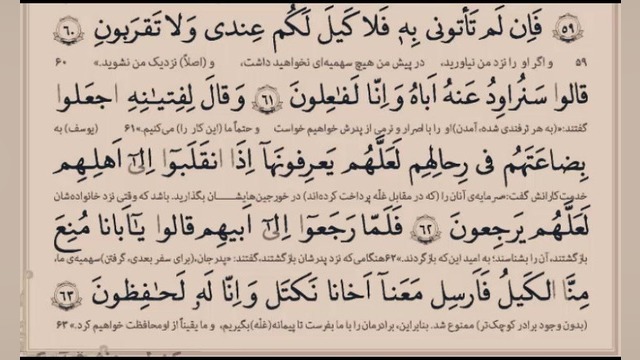 ۵۹ فَاِن لَم تَأتونى بِهٖ فَلا كَيلَ لَكُم عِندى وَلا تَقرَبونِ ۶۰
۵۹ و اگر او را نزد من نیاورید، در پیش من هیچ سهمیه‌ای نخواهید داشت، و (اصلاً) نزدیک من نشوید.» ۶۰
قالوا سَنُراوِدُ عَنهُ اَباهُ وَ اِنّا لَفٰعِلونَ ۶۱ وَ قالَ لِفِتيٰنِهِ اجعَلوا
گفتند: «(به هر ترفندی شده، آمدن) او را با اصرار و نرمی از پدرش خواهیم خواست و حتماً ما (این کار را) می‌کنیم.» ۶۱ (یوسف) به
بِضاعَتَهُم فى رِحالِهِم لَعَلَّهُم يَعرِفونَهآ اِذَا انقَلَبوٓا اِلىٰٓ اَهلِهِم
خدمت‌کارانش گفت: «سرمایه‌ی آنان را (که در مقابل غلّه پرداخت کرده‌اند) در خورجین‌هایشان بگذارید. باشد که وقتی نزد خانواده‌شان
لَعَلَّهُم يَرجِعونَ ۶۲ فَلَمّا رَجَعوٓا اِلىٰٓ اَبيهِم قالوا يٰٓاَبانا مُنِعَ
بازگشتند، آن را بشناسند؛ به امید این‌که بازگردند.» ۶۲ هنگامی که نزد پدرشان بازگشتند، گفتند: «پدر جان، (برای سفر بعدی، گرفتن) سهمیه‌ی ما،
مِنَّا الكَيلُ فَاَرسِل مَعَنآ اَخانا نَكتَل وَ اِنّا لَهٗ لَحٰفِظونَ ۶۳
(بدون وجود برادر کوچک‌تر) ممنوع شد. بنابراین، برادرمان را با ما بفرست تا پیمانه (غلّه) بگیریم، و ما یقیناً از او محافظت خواهیم کرد.» ۶۳